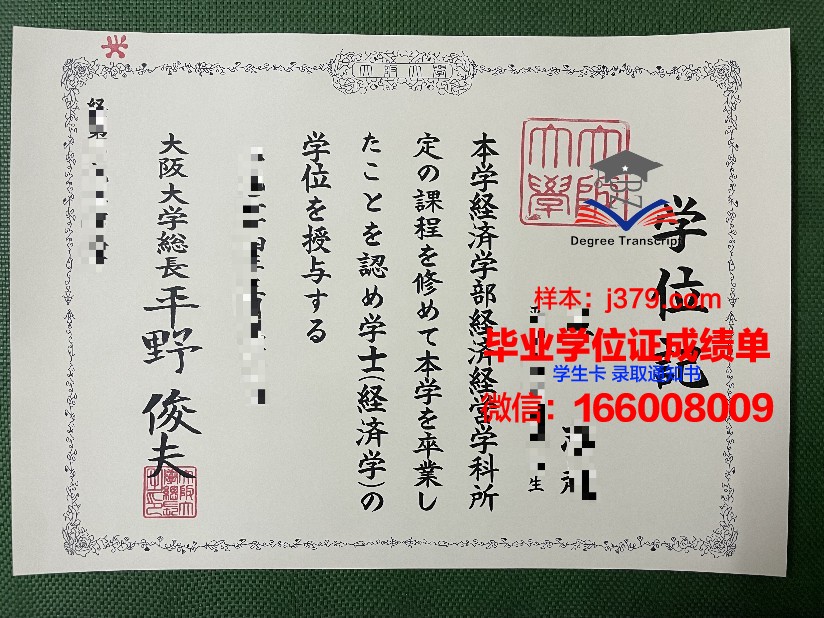 学位記
大阪
大學
本学経済学部経済経営学科所
定の課程を修めて本学を卒業し
たことを認め学士(経済学)の
学位を授与する
大阪大学総長 平野 俊夫
生
Degree Transcript
样本：j379.com
毕业学位证成绩单
学生卡 录取通知书
微信：166008009